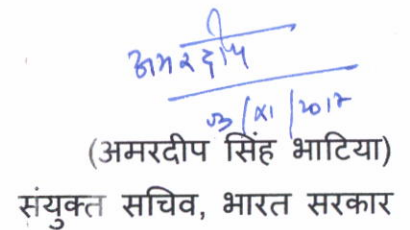 अमरदीप
03/XI/2017
(अमरदीप सिंह भाटिया)
संयुक्त सचिव, भारत सरकार